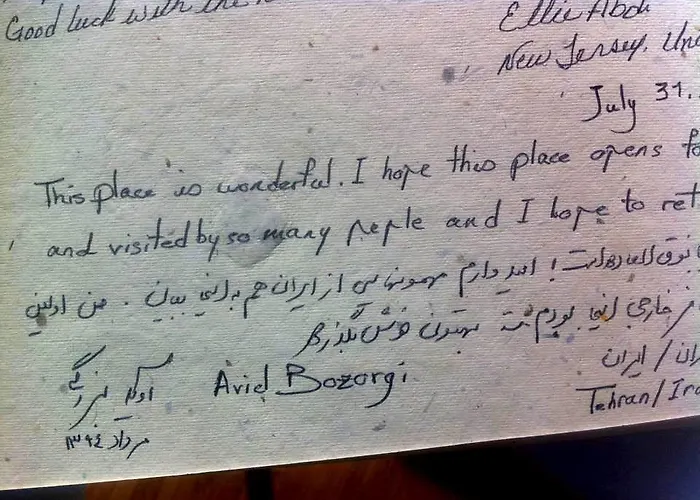 Good luck with the
Ellie Abdi
New Jersey, Uni
July 31.
This place is wonderful. I hope this place opens fo
and visited by so many peple and I hope to ret
فوق العاده است! امیدوارم مهمونهایی از ایران هم به اینجا بیان. من اولین
خارجی اینجا بودم بهتون خوش بگذره
ران / ایران
Avid Bozorgi
Tehran/Ira
مرداد ۱۳۹۴